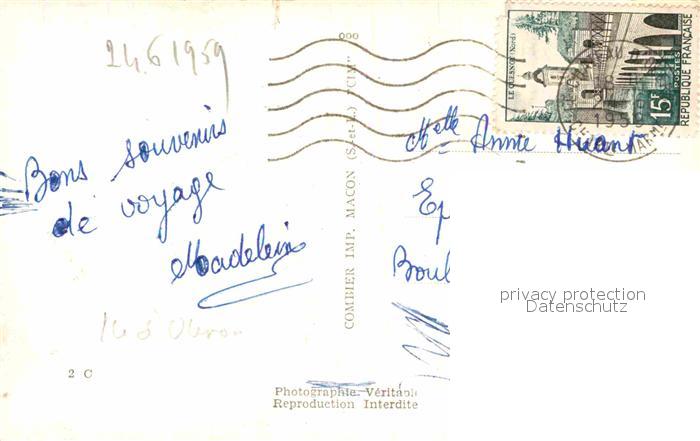 24.6 1959
Bons souvenirs
de voyage
Madeleine
2 C
ooo
COMBIER IMP. MACON (S.-et-L.) "CIM"
LE QUESNOY (Nord)
15F
POSTES
REPUBLIQUE FRANÇAISE
Melle Annie
Ep
Boul
privacy protection
Datenschutz
Photographie Véritable
Reproduction Interdite